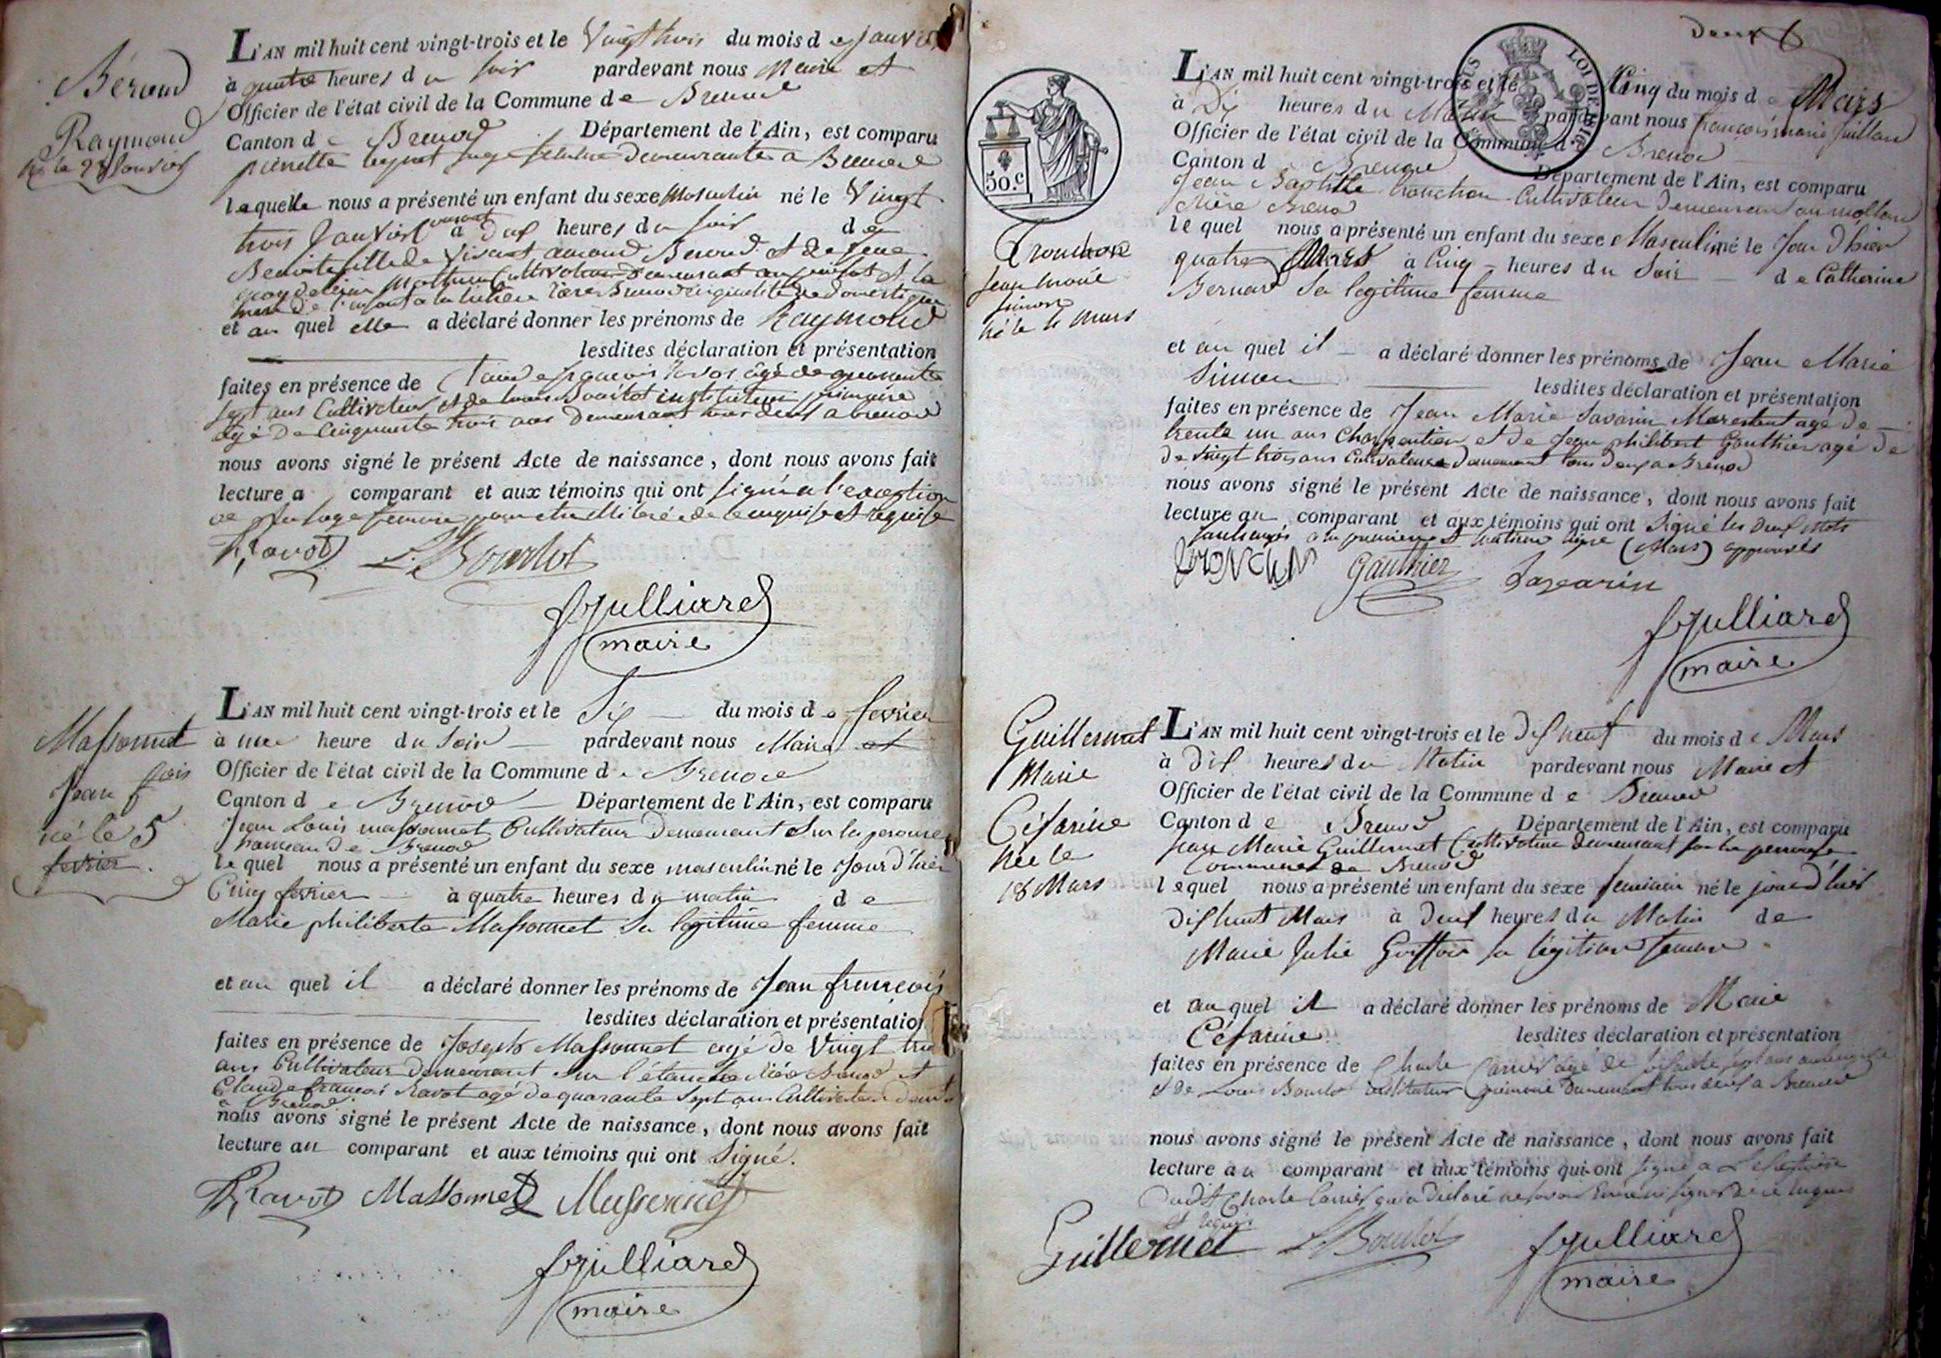 Béroud
Raymond
né le 23 Janvier
L'AN mil huit cent vingt-trois et le Vingt trois du mois de Janvier
à quatre heures du soir pardevant nous Maire et
Officier de l'état civil de la Commune de Brenod
Canton de Brenod Département de l'Ain, est comparu
sage femme demeurante à Brenod
laquelle nous a présenté un enfant du sexe Masculin né le Vingt
trois Janvier courant à deux heures du soir de
Benoite fille de Vincent Béroud et de
Cultivateur demeurant
et au quel elle a déclaré donner les prénoms de Raymond
lesdites déclaration et présentation
faites en présence de Claude françois Ravot âgé de quarante
sept ans Cultivateur et de Louis Bourlot instituteur primaire
âgé de Cinquante trois ans demeurant tous deux a brenod
nous avons signé le présent Acte de naissance, dont nous avons fait
lecture a comparant et aux témoins qui ont signé a l'exception
de la sage femme pour être illitérée de ce enquise et requise
Ravot L. Bourlot
fjulliard
maire
Massonnet
Jean fcois
né le 5
fevrier.
L'AN mil huit cent vingt-trois et le Six du mois de fevrier
à une heure du Soir pardevant nous Maire et
Officier de l'état civil de la Commune de Brenod
Canton de Brenod Département de l'Ain, est comparu
Jean Louis massonnet Cultivateur Demeurant Sur la perouse
hameau de Brenod
lequel nous a présenté un enfant du sexe masculin né le Jour d'hier
Cinq fevrier à quatre heures du matin de
Marie philiberte Massonnet Sa légitime femme
et au quel il a déclaré donner les prénoms de Jean françois
lesdites déclaration et présentation
faites en présence de Joseph Massonnet agé de Vingt trois
ans Cultivateur Demeurant Sur l'étang rière Brenod et
Claude françois Ravot agé de quarante Sept ans Cultivateur demt
à Brenod
nous avons signé le présent Acte de naissance, dont nous avons fait
lecture au comparant et aux témoins qui ont Signé.
Ravot Massonnet Massonnet
fjulliard
maire
deux
50.c
LOI DE 1816
Tronchon
Jean marie
simon
né le 4 mars
L'AN mil huit cent vingt-trois et le Cinq du mois de Mars
à Dix heures du Matin pardevant nous françois marie Juillard
Officier de l'état civil de la Commune de Brenod
Canton de Brenod Département de l'Ain, est comparu
Jean Baptiste tronchon Cultivateur Demeurant au mollard
rière Brenod
lequel nous a présenté un enfant du sexe Masculin né le Jour d'hier
quatre Mars à Cinq heures du Soir de Catherine
Bernard Sa légitime femme
et au quel il a déclaré donner les prénoms de Jean Marie
Simon lesdites déclaration et présentation
faites en présence de Jean Marie Savarin Marentent agé de
trente un ans Charpentier et de Jean philibert Gauthier agé de
de vingt trois ans Cultivateur demeurant tous deux a Brenod
nous avons signé le présent Acte de naissance, dont nous avons fait
lecture au comparant et aux témoins qui ont Signé les deux mots
surchargés a la premiere et huitieme ligne (Mars) approuvés
Gauthier Savarin
fjulliard
maire
Guillermet
Marie
Césarine
née le
18 Mars
L'AN mil huit cent vingt-trois et le Dix neuf du mois de Mars
à Dix heures du Matin pardevant nous Maire et
Officier de l'état civil de la Commune de Brenod
Canton de Brenod Département de l'Ain, est comparu
Jean Marie Guillermet Cultivateur demeurant sur la perouse
Commune de Brenod
lequel nous a présenté un enfant du sexe feminin né le jour d'hier
dix huit Mars à Deux heures du Matin de
Marie Julie sa légitime femme
et au quel il a déclaré donner les prénoms de Marie
Césarine lesdites déclaration et présentation
faites en présence de Charle Carrier agé de
et de Louis Bourlot instituteur primaire demeurant tous deux a Brenod
nous avons signé le présent Acte de naissance, dont nous avons fait
lecture au comparant et aux témoins qui ont signé a L'exception
dudit Charle Carrier qui a déclaré ne savoir Ecrire ni signer de ce enquis
et requis
Guillermet L. Bourlot fjulliard
maire